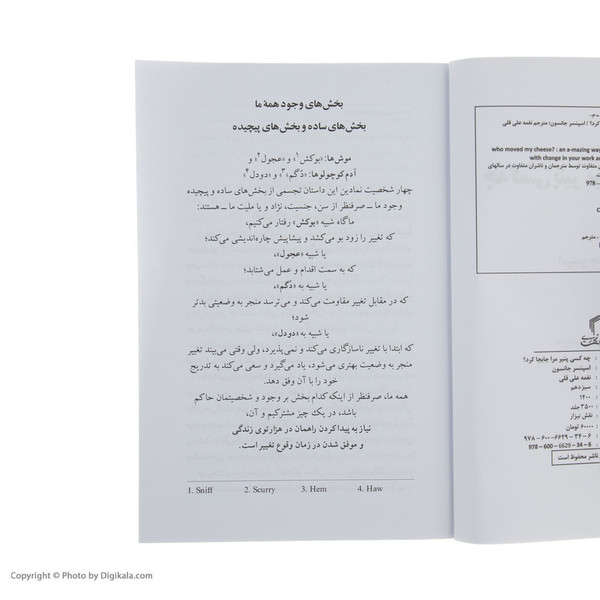 بخش‌های وجود همهٔ ما
بخش‌های ساده و بخش‌های پیچیده
موش‌ها: «بوکش۱» و «عجول۲» و
آدم کوچولوها: «دُگم۳» و «دودل۴»
چهار شخصیت نمادین این داستان تجسمی از بخش‌های ساده و پیچیده
وجود ما ــ صرفنظر از سن، جنسیت، نژاد و یا ملیت ما ــ هستند:
ما گاه شبیه «بوکش» رفتار می‌کنیم،
که تغییر را زود بو می‌کشد و پیشاپیش چاره‌اندیشی می‌کند؛
یا شبیه «عجول»،
که به سمت اقدام و عمل می‌شتابد؛
یا شبیه به «دگم»،
که در مقابل تغییر مقاومت می‌کند و می‌ترسد منجر به وضعیتی بدتر
شود؛
یا شبیه به «دودل»،
که ابتدا با تغییر ناسازگاری می‌کند و نمی‌پذیرد، ولی وقتی می‌بیند تغییر
منجر به وضعیت بهتری می‌شود، یاد می‌گیرد و سعی می‌کند به تدریج
خود را با آن وفق دهد.
همه ما، صرفنظر از اینکه کدام بخش بر وجود و شخصیتمان حاکم
باشد، در یک چیز مشترکیم و آن،
نیاز به پیدا کردن راهمان در هزارتوی زندگی
و موفق شدن در زمان وقوع تغییر است.
1. Sniff 2. Scurry 3. Hem 4. Haw
کرد؟ / اسپنسر جانسون؛ مترجم نغمه علی قلی
who moved my cheese? : an a-mazing way
with change in your work and
متفاوت توسط مترجمان و ناشران متفاوت در سالهای
978 -
، مترجم
: چه کسی پنیر مرا جابجا کرد؟
: اسپنسر جانسون
: نغمه علی قلی
: سیزدهم
: ۱۴۰۰
: ۳۵۰۰ جلد
: نقش نیزار
: ۶۰۰۰۰ تومان
: ۹۷۸ – ۶۰۰ – ۶۶۲۹ – ۳۴ – ۶
: 978 – 600 – 6629 – 34 – 6
ناشر محفوظ است
Copyright © Photo by Digikala.com